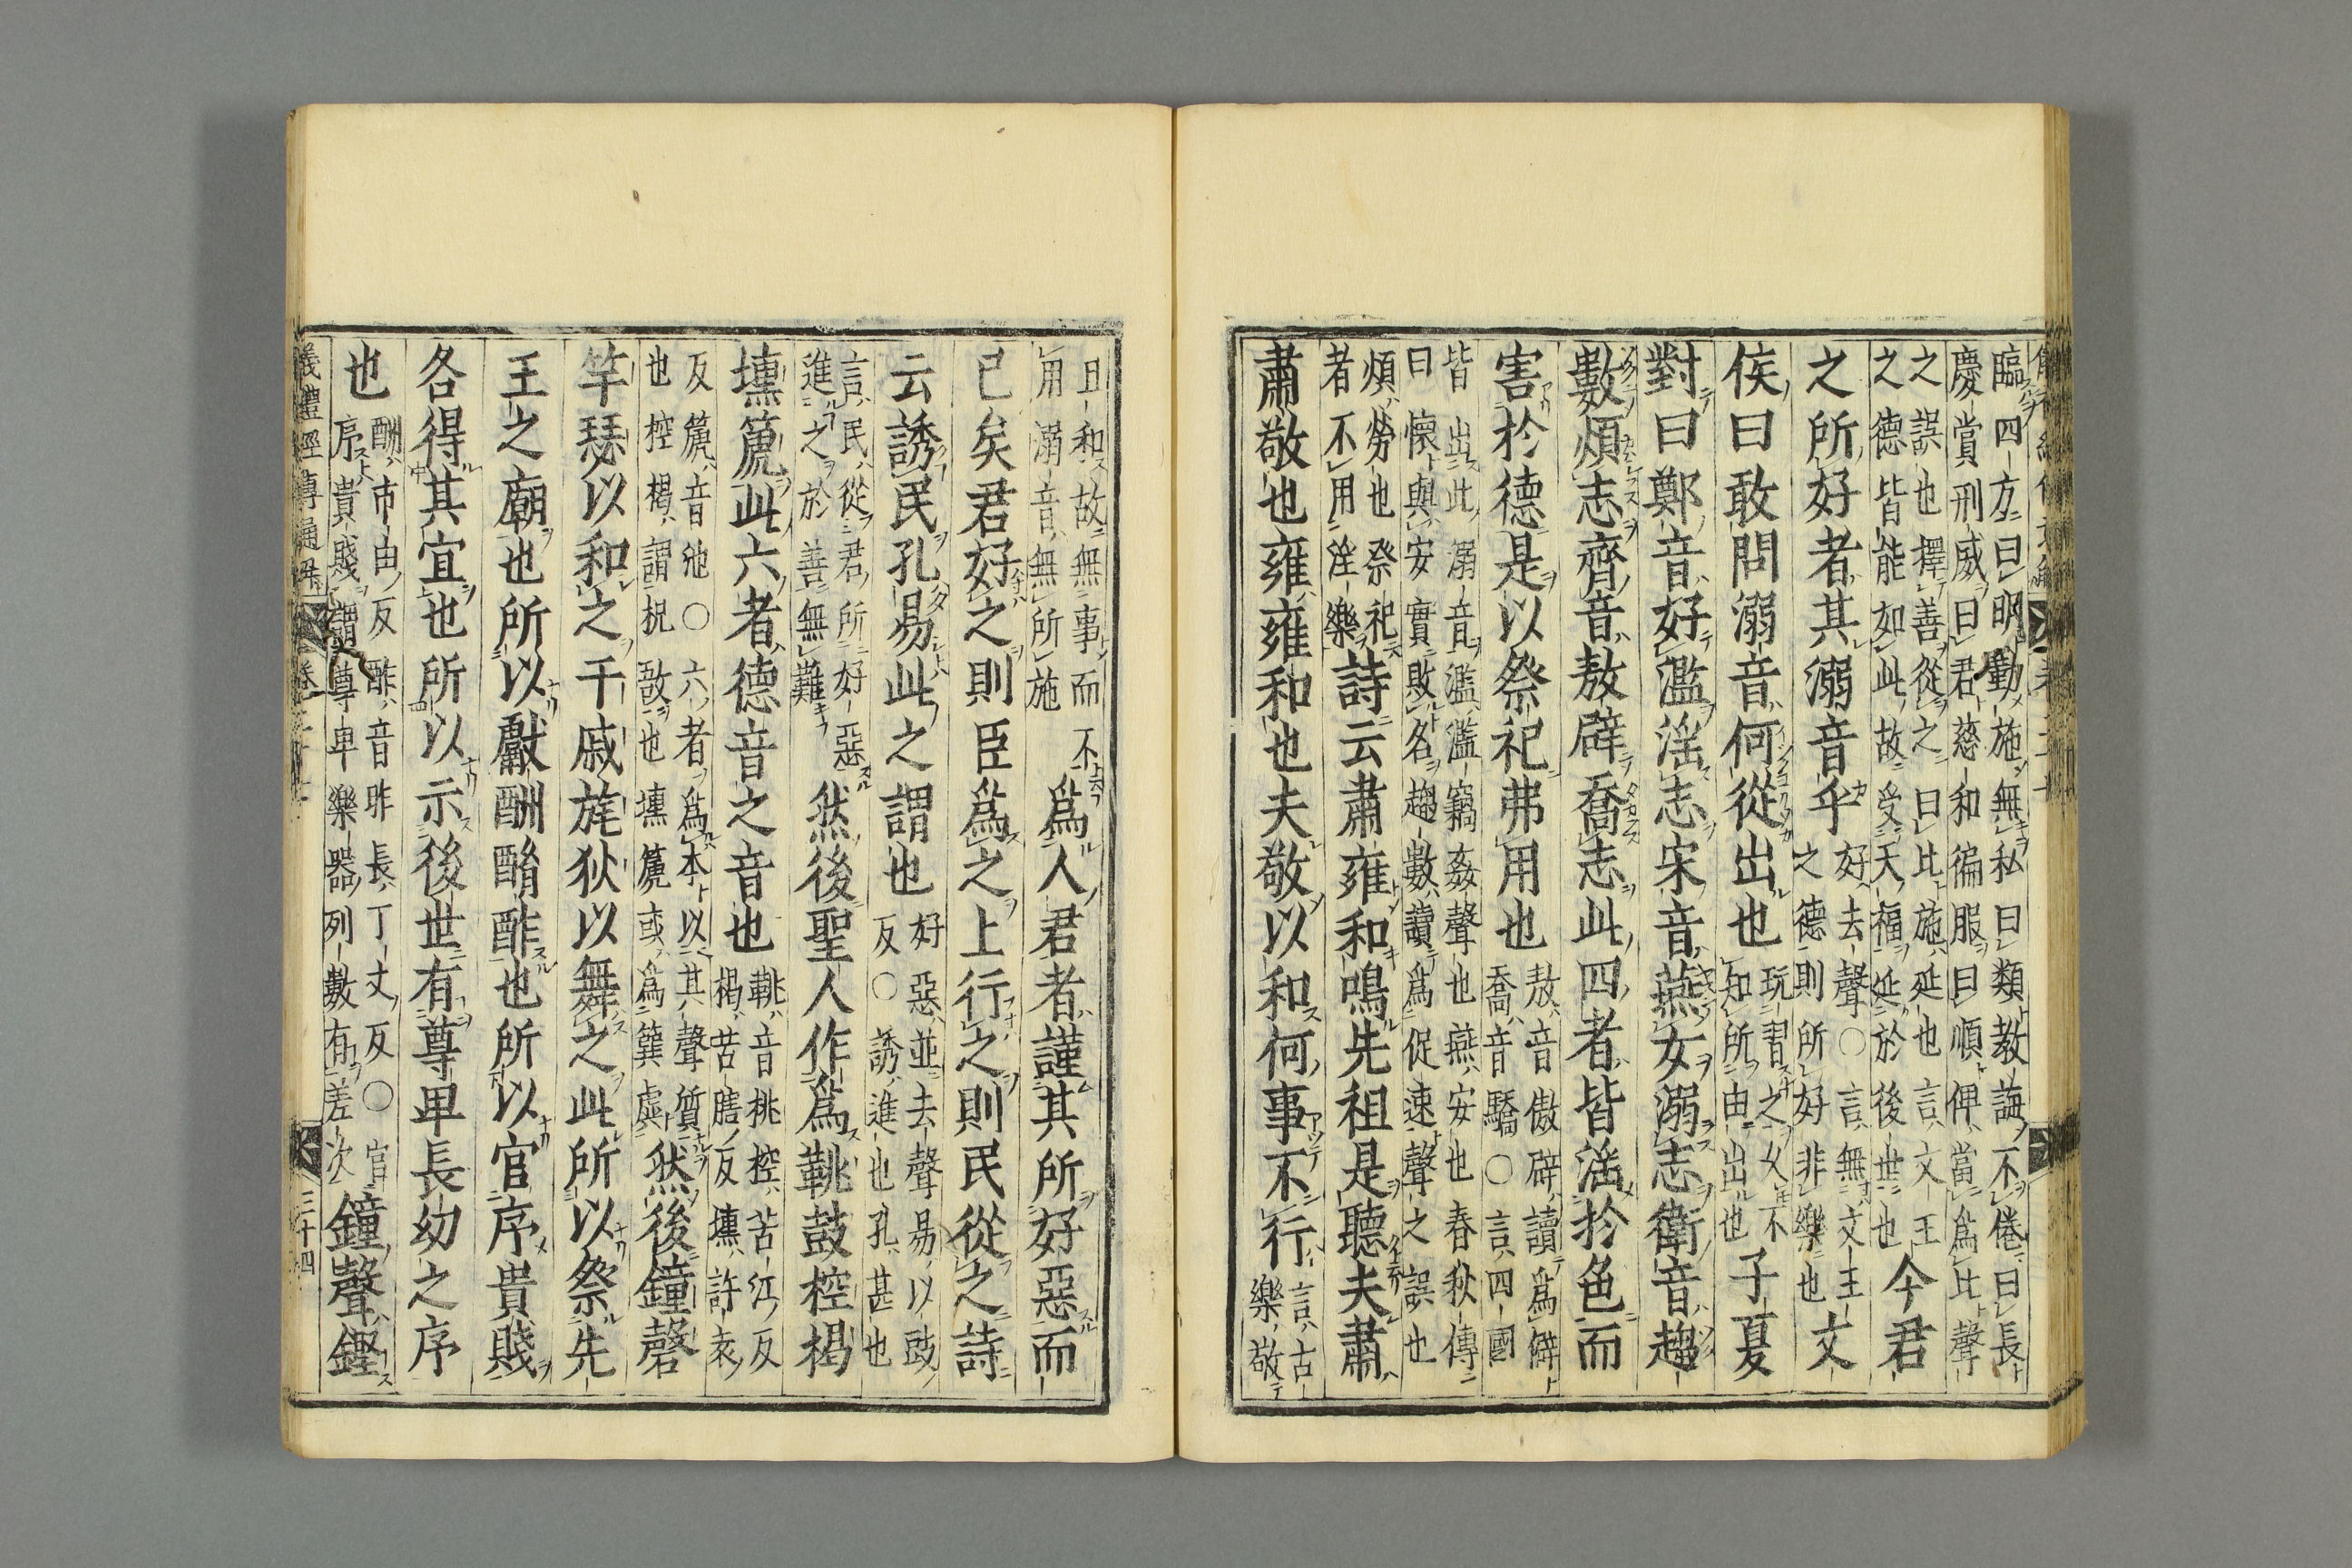 臨四方曰明勤施無私曰類教誨不倦曰長
慶賞刑威曰君慈和徧服曰順俾當爲比聲
之誤也擇善從之曰比施延也言文王
之德皆能如此故受天福延於後世也
今君
之所好者其溺音乎
好去聲○言無文王
之德則所好非樂也
文
侯曰敢問溺音何從出也
玩習之乆不
知所由出也
子夏
對曰鄭音好濫淫志宋音燕女溺志衛音趨
數煩志齊音敖辟喬志此四者皆淫於色而
害於德是以祭祀弗用也
敖音傲辟讀爲僻
喬音驕○言四國
皆出此溺音濫濫竊姦聲也燕安也春秋傳
曰懷與安實敗名趨數讀爲促速聲之誤也
煩勞也祭祀
者不用淫樂
詩云肅雍和鳴先祖是聽夫肅
肅敬也雍雍和也夫敬以和何事不行
言古
樂敬
且和故無事而不
用溺音無所施
爲人君者謹其所好惡而
已矣君好之則臣爲之上行之則民從之詩
云誘民孔易此之謂也
好惡並去聲易以豉
反○誘進也孔甚也
言民從君所好惡
進之於善無難
然後聖人作爲鞉鼓椌楬
壎篪此六者德音之音也
鞉音桃椌苦江反
楬苦瞎反壎許袁
反篪音池○六者爲本以其聲質
也椌楬謂柷敔也壎篪或爲簨虡
然後鐘磬
竽瑟以和之干戚旄狄以舞之此所以祭先
王之廟也所以獻酬酳酢也所以官序貴賤
各得其宜也所以示後世有尊卑長幼之序
也
酬市由反酢音昨長丁丈反○官
序貴賤謂尊卑樂器列數有差次
鐘聲鏗
儀禮經傳通解
卷二十七
三十四